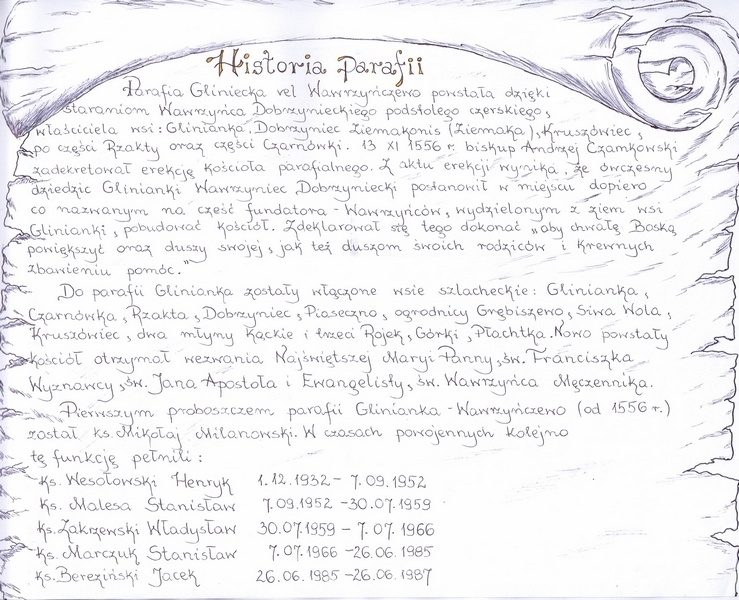 Historia parafii
Parafia Gliniecka vel Wawrzyńczewo powstała dzięki
staraniom Wawrzyńca Dobrzynieckiego podstolego czerskiego,
właściciela wsi: Glinianka, Dobrzyniec Ziemakonis (Ziemaka), Kruszówiec,
po części Rzakty oraz części Czarnówki. 13 XI 1556 r. biskup Andrzej Czamkowski
zadekretował erekcję kościoła parafialnego. Z aktu erekcji wynika, że ówczesny
dziedzic Glinianki Wawrzyniec Dobrzyniecki postanowił w miejscu dopiero
co nazwanym na cześć fundatora - Wawrzyńców, wydzielonym z ziem wsi
Glinianki, pobudować kościół. Zdeklarował się tego dokonać „aby chwałę Boską
powiększyć oraz duszy swojej, jak też duszom swoich rodziców i krewnych
zbawieniu pomóc."
Do parafii Glinianka zostały włączone wsie szlacheckie: Glinianka,
Czarnówka, Rzakta, Dobrzyniec, Piaseczno, ogrodnicy Grębiszewo, Siwa Wola,
Kruszówiec, dwa młyny Kąckie i trzeci Rojek, Górki, Płachtka. Nowo powstały
kościół otrzymał wezwania Najświętszej Maryi Panny, św. Franciszka
Wyznawcy, św. Jana Apostoła i Ewangelisty, św. Wawrzyńca Męczennika.
Pierwszym proboszczem parafii Glinianka - Wawrzyńczewo (od 1556 r.)
został ks. Mikołaj Milanowski. W czasach powojennych kolejno
tę funkcję pełnili:
ks. Wesołowski Henryk 1.12.1932 - 7.09.1952
ks. Malesa Stanisław 7.09.1952 - 30.07.1959
ks. Zakrzewski Władysław 30.07.1959 - 7.07.1966
ks. Marczuk Stanisław 7.07.1966 - 26.06.1985
ks. Bereziński Jacek 26.06.1985 - 26.06.1987